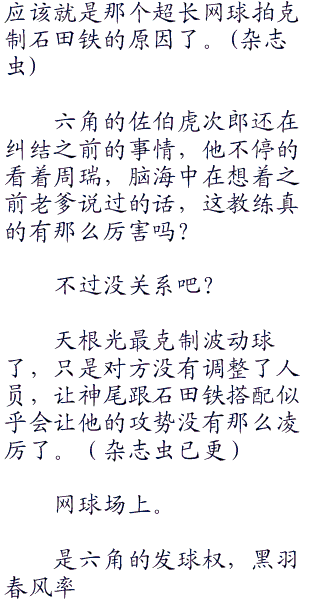 应该就是那个超长网球拍克
制石田铁的原因了。(杂志
虫)
六角的佐伯虎次郎还在
纠结之前的事情，他不停的
看着周瑞，脑海中在想着之
前老爹说过的话，这教练真
的有那么厉害吗？
不过没关系吧？
天根光最克制波动球
了，只是对方没有调整了人
员，让神尾跟石田铁搭配似
乎会让他的攻势没有那么凌
厉了。（杂志虫已更）
网球场上。
是六角的发球权，黑羽
春风率